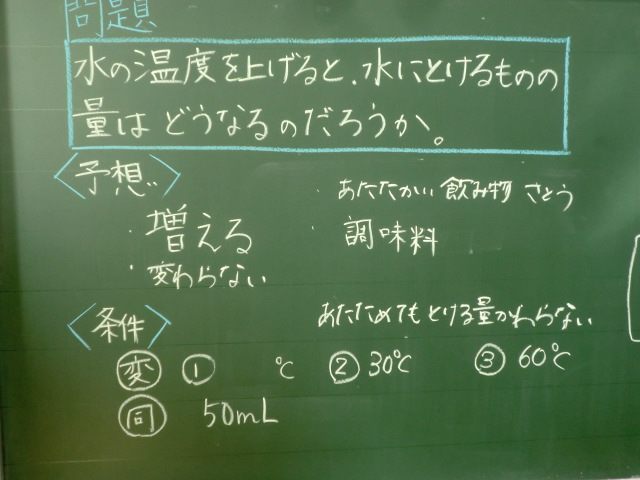 問題
水の温度を上げると、水にとけるものの
量は どうなるのだろうか。
〈予想〉
・増える
・変わらない
・あたたかい飲み物 さとう
・調味料
あたためてもとける量かわらない
〈条件〉
変 ① ℃ ② 30℃ ③ 60℃
同 50mL